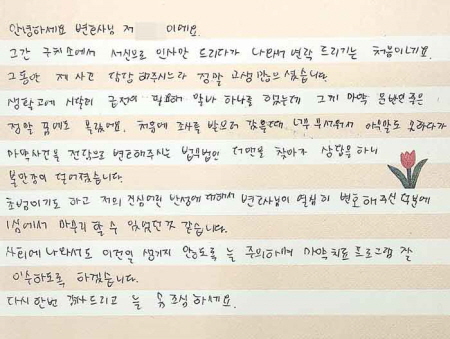 안녕하세요 변호사님 저 이에요.
그간 구치소에서 서신으로 인사만 드리다가 나와서 연락 드리기는 처음이네요.
그동안 제 사고 담당 해주시느라 정말 고생 많으셨습니다.
생활고에 시달려 금전이 필요해 알바 하나를 했는데 그게 마약 운반인 줄은
정말 꿈에도 몰랐어요. 처음에 조사를 받으러 갔을때 너무 무서워서 아무말도 못하다가
마약사건을 전담으로 변호해주시는 법무법인 더앤을 찾아가 상담을 하니
불안감이 덜어졌습니다.
초범이기도 하고 저의 진심어린 반성에 대해서 변호사님이 열심히 변호해주신 덕분에
1심에서 마무리 할 수 있었던것 같습니다.
사회에 나와서도 이런일 생기지 않도록 늘 주의하며 마약치료 프로그램 잘
이수하도록 하겠습니다.
다시 한번 감사드리고 늘 몸 조심하세요.